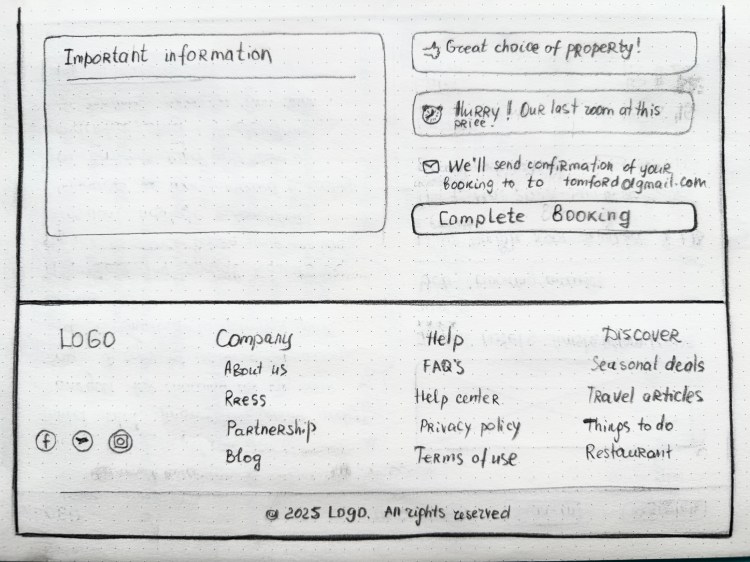 Important information
Great choice of property!
Hurry! Our last room at this
price!
We'll send confirmation of your
booking to to tomford@gmail.com
Complete Booking
LOGO
Company
About us
Rress
Partnership
Blog
Help
FAQ'S
Help center
Privacy policy
Terms of use
Discover
Seasonal deals
Travel articles
Things to do
Restaurant
© 2025 Logo. All rights reserved